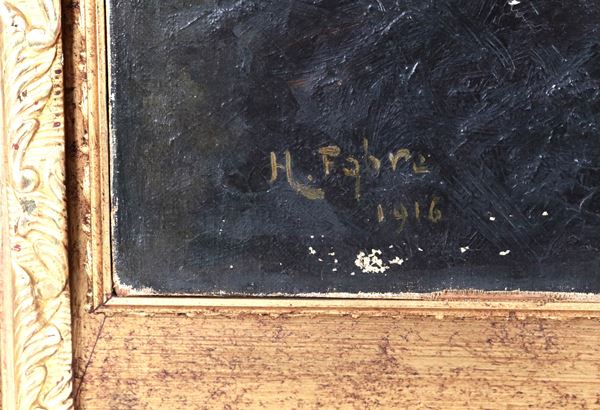 H. Fabre
1916